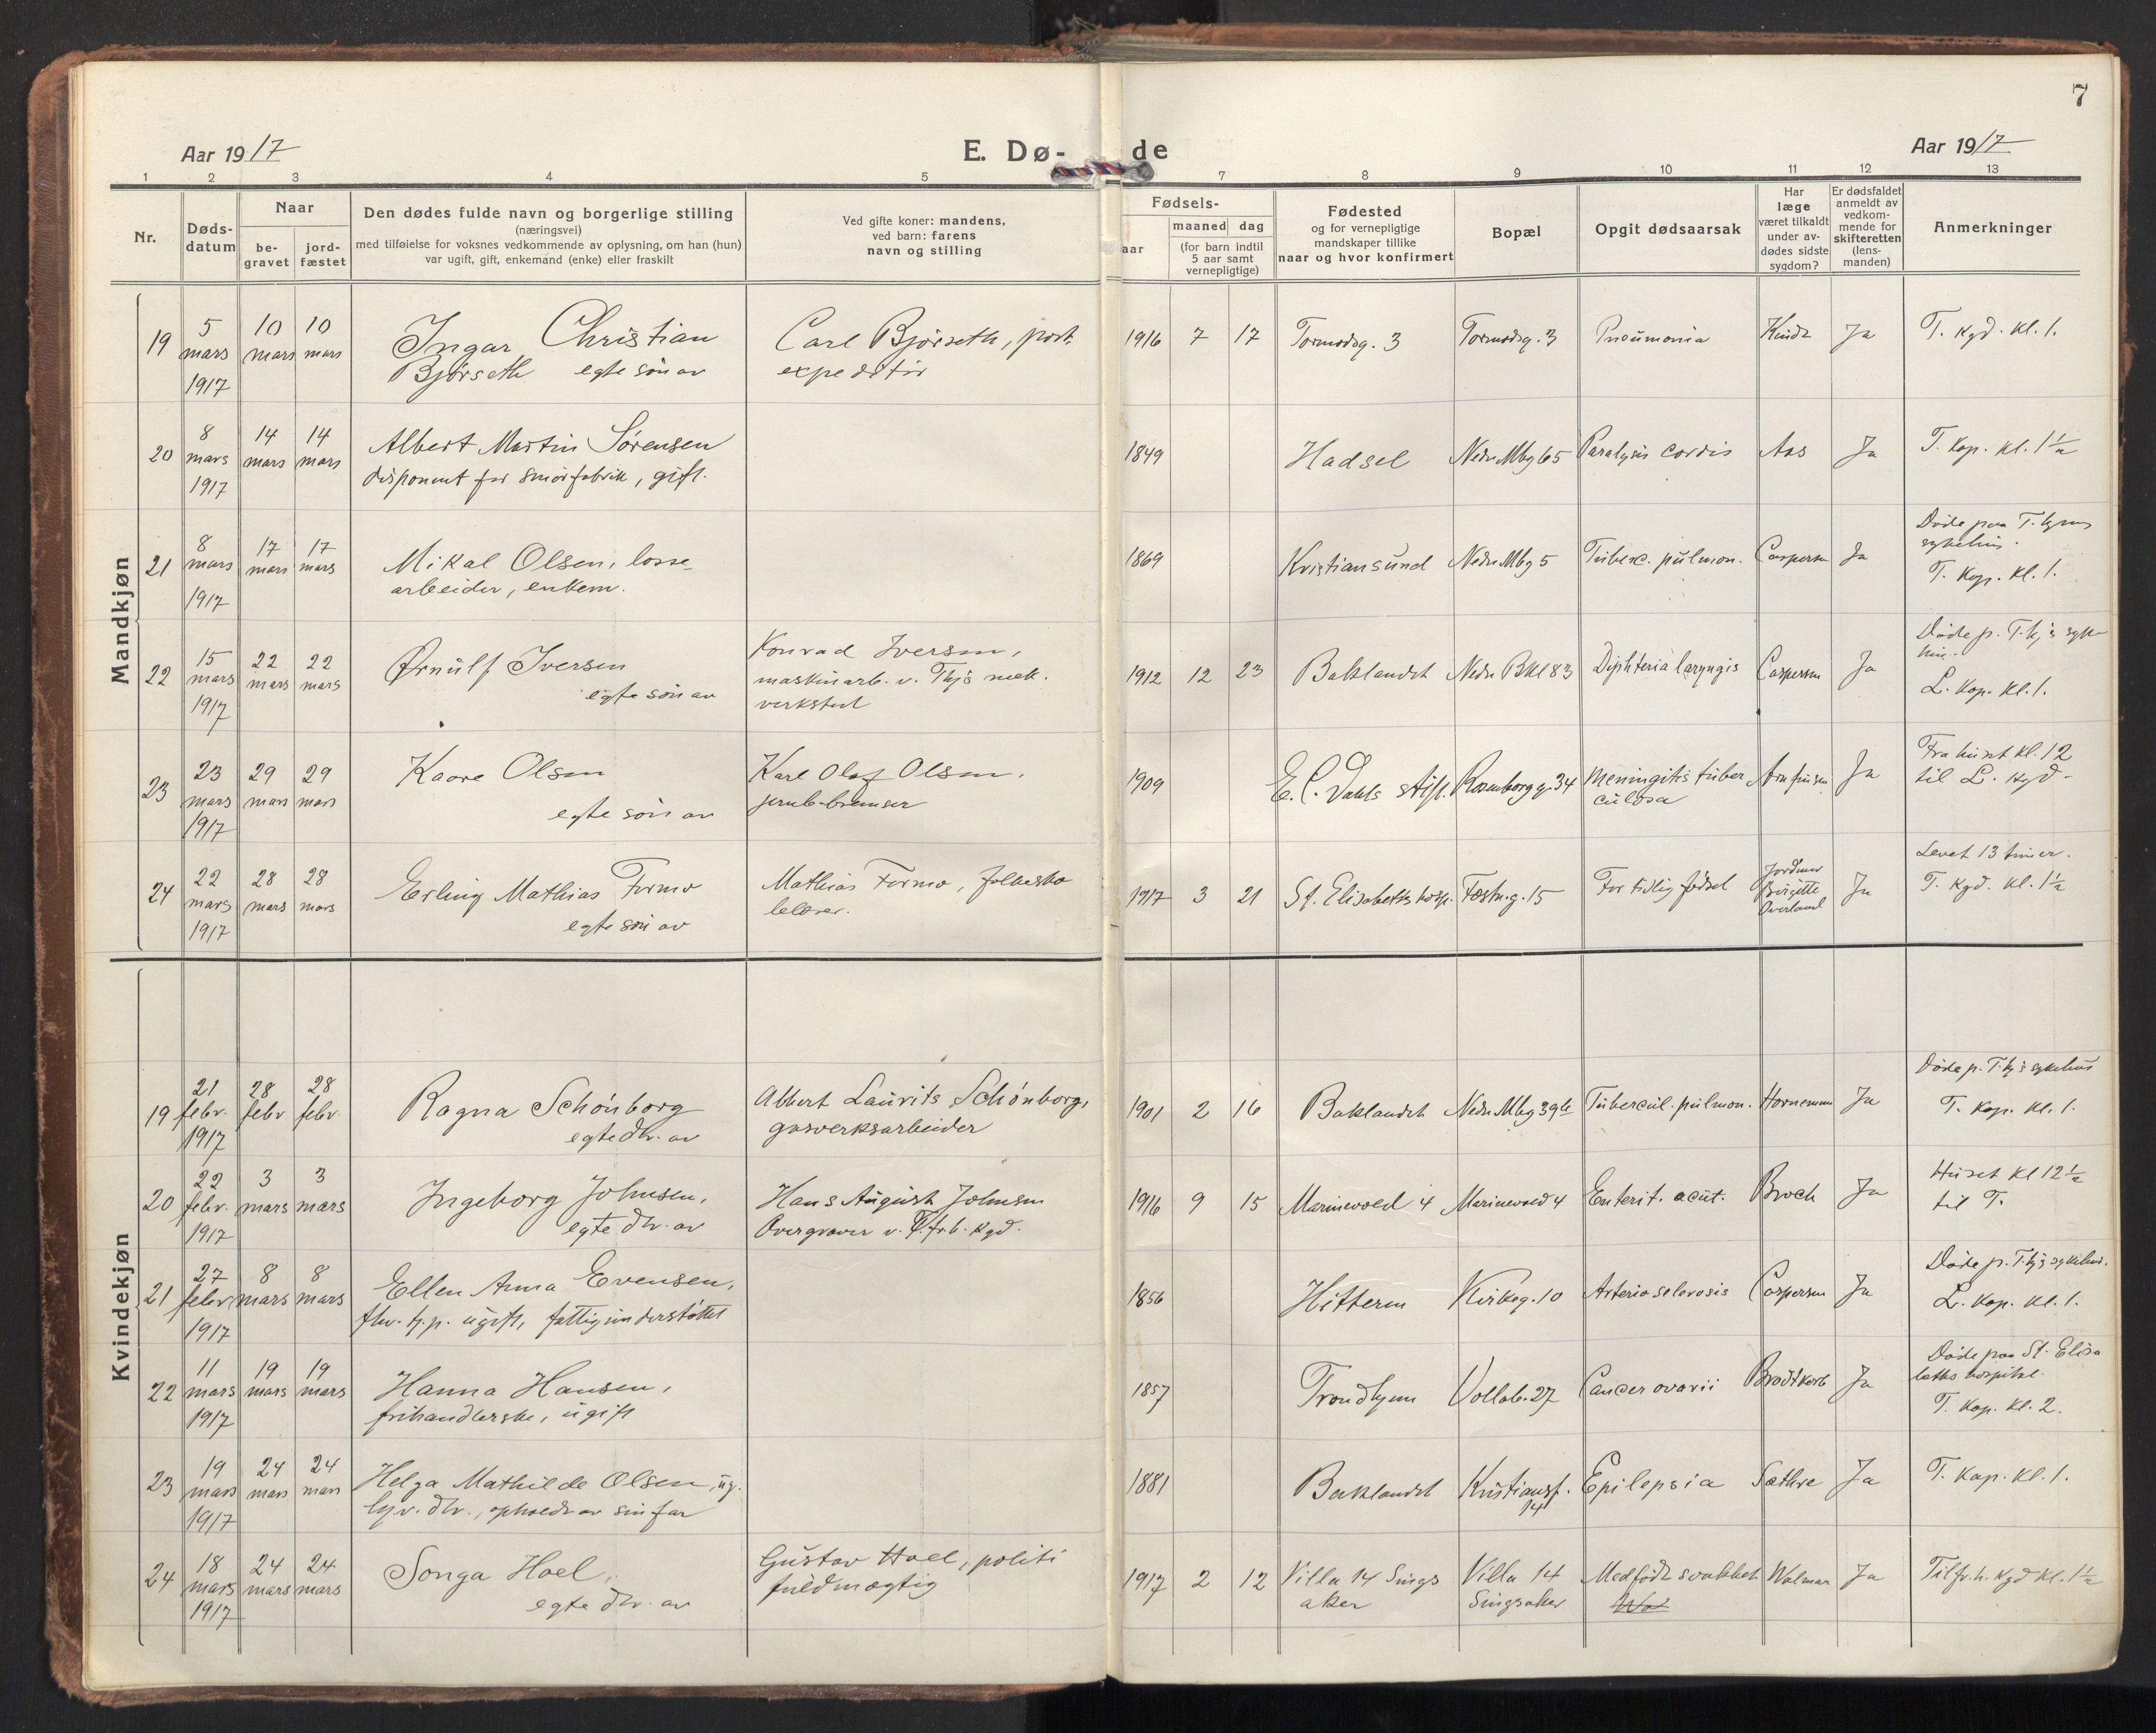 7
Aar 1917
E. Dø-
de
Aar 1917
1 2 3 4 5 7 8 9 10 11 12 13
Nr.
Døds-
datum
Naar
be-
gravet
jord-
fæstet
Den dødes fulde navn og borgerlige stilling
(næringsvei)
med tilføielse for voksnes vedkommende av oplysning, om han (hun)
var ugift, gift, enkemand (enke) eller fraskilt
Ved gifte koner: mandens,
ved barn: farens
navn og stilling
Fødsels-
aar
maaned dag
(for barn indtil
5 aar samt
vernepligtige)
Fødested
og for vernepligtige
mandskaper tillike
naar og hvor konfirmert
Bopæl
Opgit dødsaarsak
Har
læge
været tilkaldt
under av-
dødes sidste
sygdom?
Er dødsfaldet
anmeldt av
vedkom-
mende for
skifteretten
(lens-
manden)
Anmerkninger
Mandkjøn
19
5
mars
1917
10
mars
10
mars
Ingar Christian
Bjørseth egte søn av
Carl Bjørseth, post-
expeditør
1916 7 17
Tormodsg. 3
Tormodsg. 3
Pneumonia
Kindt
Ja
T. kgd. kl. 1.
20
8
mars
1917
14
mars
14
mars
Albert Martin Sørensen
disponent for smørfabrik, gift.
1849
Hadsel
Nedre Mbg 65
Paralysis cordis
Aas
Ja
T. kap. kl. 1½
21
8
mars
1917
17
mars
17
mars
Mikal Olsen, losse-
arbeider, enkem.
1869
Kristiansund
Nedre Mbg 5
Tuberc. pulmon.
Caspersen
Ja
Døde paa T.hjems
sykehus.
T. kap. kl. 1.
22
15
mars
1917
22
mars
22
mars
Ørnulf Iversen
egte søn av
Konrad Iversen,
maskinarb. v. Thjs mek.
verksted
1912 12 23
Baklandet
Nedre Bkl 83
Diphteria laryngis
Caspersen
Ja
Døde p. T.hj.s syke-
hus.
L. kap. kl. 1.
23
23
mars
1917
29
mars
29
mars
Kaare Olsen
egte søn av
Karl Olaf Olsen,
jernb.bremser
1909
E. C. Dahls stift.
Rosenborg g. 34
Meningitis tuber
culosa
Arnfinsen
Ja
Fra huset kl. 12
til L. kgd-
24
22
mars
1917
28
mars
28
mars
Erling Mathias Formo
egte søn av
Mathias Formo, folkesko
lelærer.
1917 3 21
St. Elisabeths hosp.
Fæstn.g. 15
For tidlig fødsel
Jordmor
Birgitte
Overland
Ja
Levet 13 timer.
T. kgd. kl. 1½
Kvindekjøn
19
21
febr.
1917
28
febr
28
febr.
Ragna Schönborg
egte dtr. av
Albert Laurits Schönborg,
gasverksarbeider
1901 2 16
Baklandet
Nedre Mbg 39b
Tubercul. pulmon.
Hornemann
Ja
Døde p. T.hj.s sykehus
T. kap. kl. 1.
20
22
febr.
1917
3
mars
3
mars
Ingeborg Johnsen,
egte dtr. av
Hans August Johnsen
Overgraver v. T.frb. kgd.
1916 9 15
Marinevold 4
Marinevold 4
Enterit. acut.
Broch
Ja
Huset kl 12½
til T.
21
27
febr
1917
8
mars
8
mars
Ellen Anna Evensen,
fhv. tj.p. ugift, fattigunderstøttet
1856
Hitteren
Kirkeg. 10
Arteriosclerosis
Caspersen
Ja
Døde p. T.hj.s sykehus.
L. kap. kl. 1.
22
11
mars
1917
19
mars
19
mars
Hanna Hansen,
frihandlerske, ugift
1857
Trondhjem
Vollab. 27
Cancer ovarii
Brodtkorb
Ja
Døde paa St. Elisa
beths hospital.
T. kap. kl. 2.
23
19
mars
1917
24
mars
24
mars
Helga Mathilde Olsen, ug.
hjv. dtr., opholdt av sin far
1881
Baklandet
Kristiansf.
14
Epilepsia
Sæthre
Ja
T. kap. kl. 1.
24
18
mars
1917
24
mars
24
mars
Songa Hoel,
egte dtr. av
Gustav Hoel, politi
fuldmægtig
1917 2 12
Villa 14 Sings
aker
Villa 14
Singsaker
Medfødt svakhet
Walmar
Ja
Tilfr.h. kgd kl. 1½